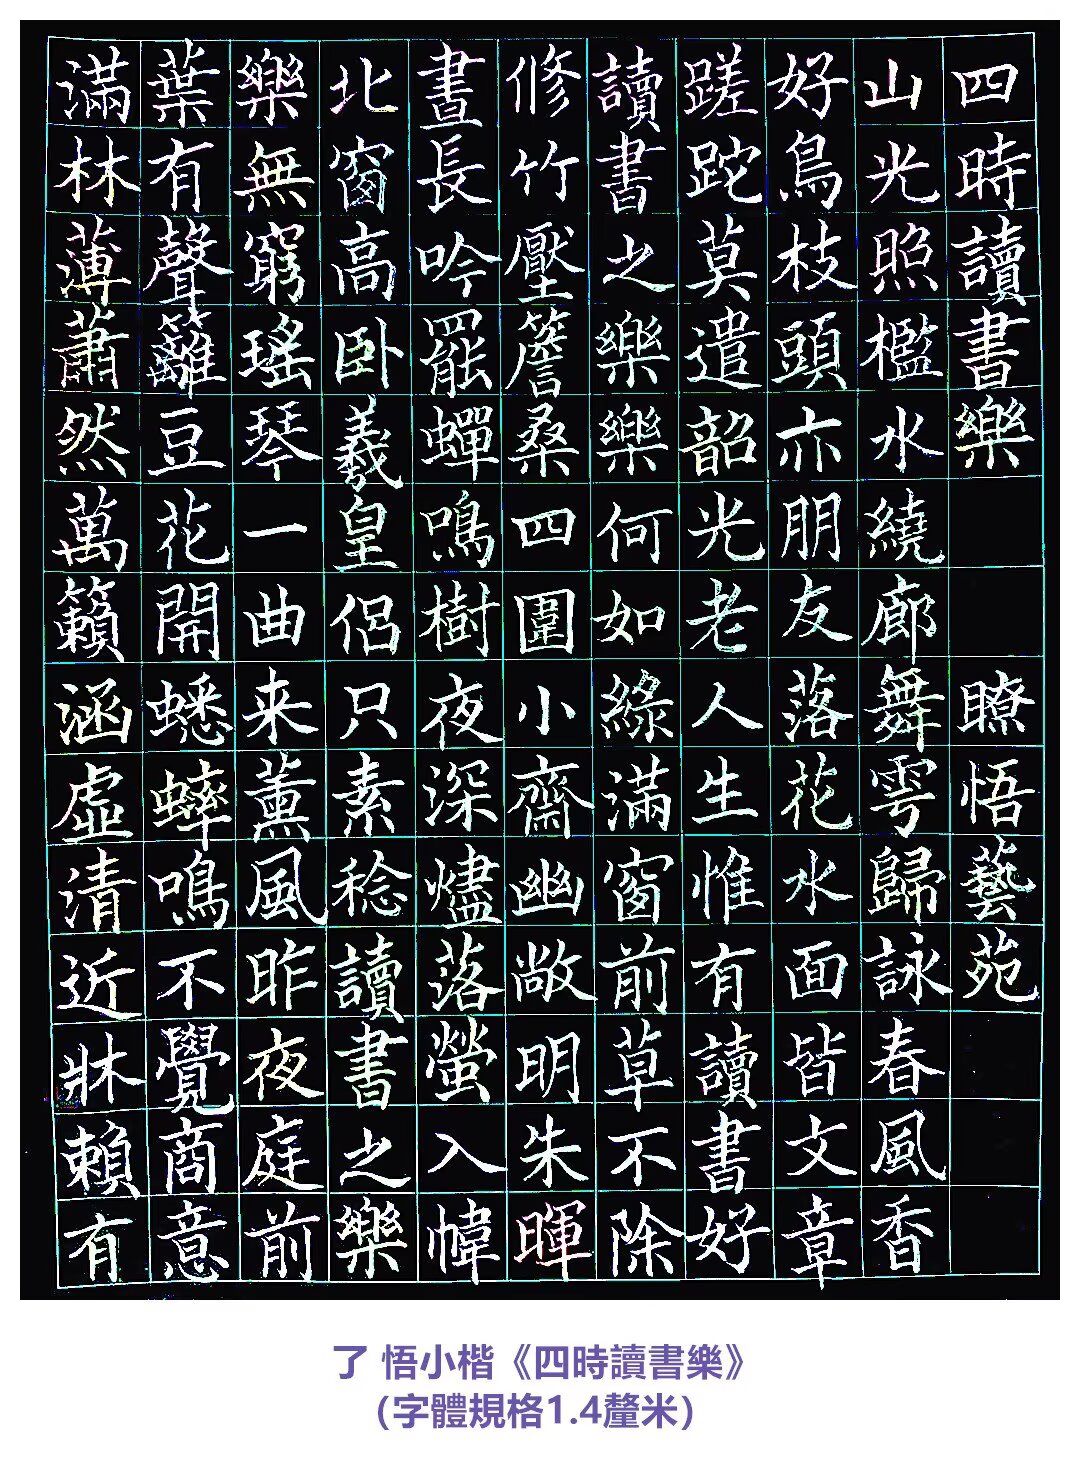 四時讀書樂 瞭悟藝苑
山光照檻水繞廊舞雩歸詠春風香
好鳥枝頭亦朋友落花水面皆文章
蹉跎莫遣韶光老人生惟有讀書好
讀書之樂樂何如綠滿窗前草不除
修竹壓簷桑四圍小齋幽敞明朱暉
晝長吟罷蟬鳴樹夜深燼落螢入幃
北窗高卧羲皇侶只素稔讀書之樂
樂無窮瑤琴一曲来薰風昨夜庭前
葉有聲籬豆花開蟋蟀鳴不覺商意
滿林薄蕭然萬籟涵虛清近牀賴有
了 悟小楷《四時讀書樂》
(字體規格1.4釐米)